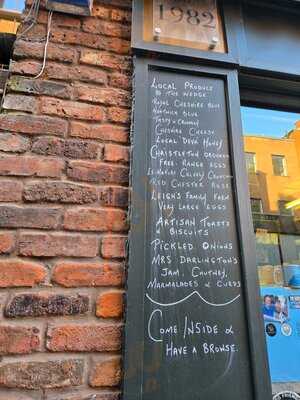 1982
Local Produce
@ The Wedge
Royal Cheshire Blue
Nantwich Blue
Tasty n Crumbly
Cheshire Cheese
Local Deva Honey
Christleton Orchard
Free Range Eggs
Calvely Churchton
Red Chester Rose
Leighs Family Farm
Very Large Eggs
Artisan Toasts
& Biscuits
Pickled Onions
Mrs Darlington's
Jam, Chutney,
Marmalades & Curds
Come Inside &
Have a Browse.